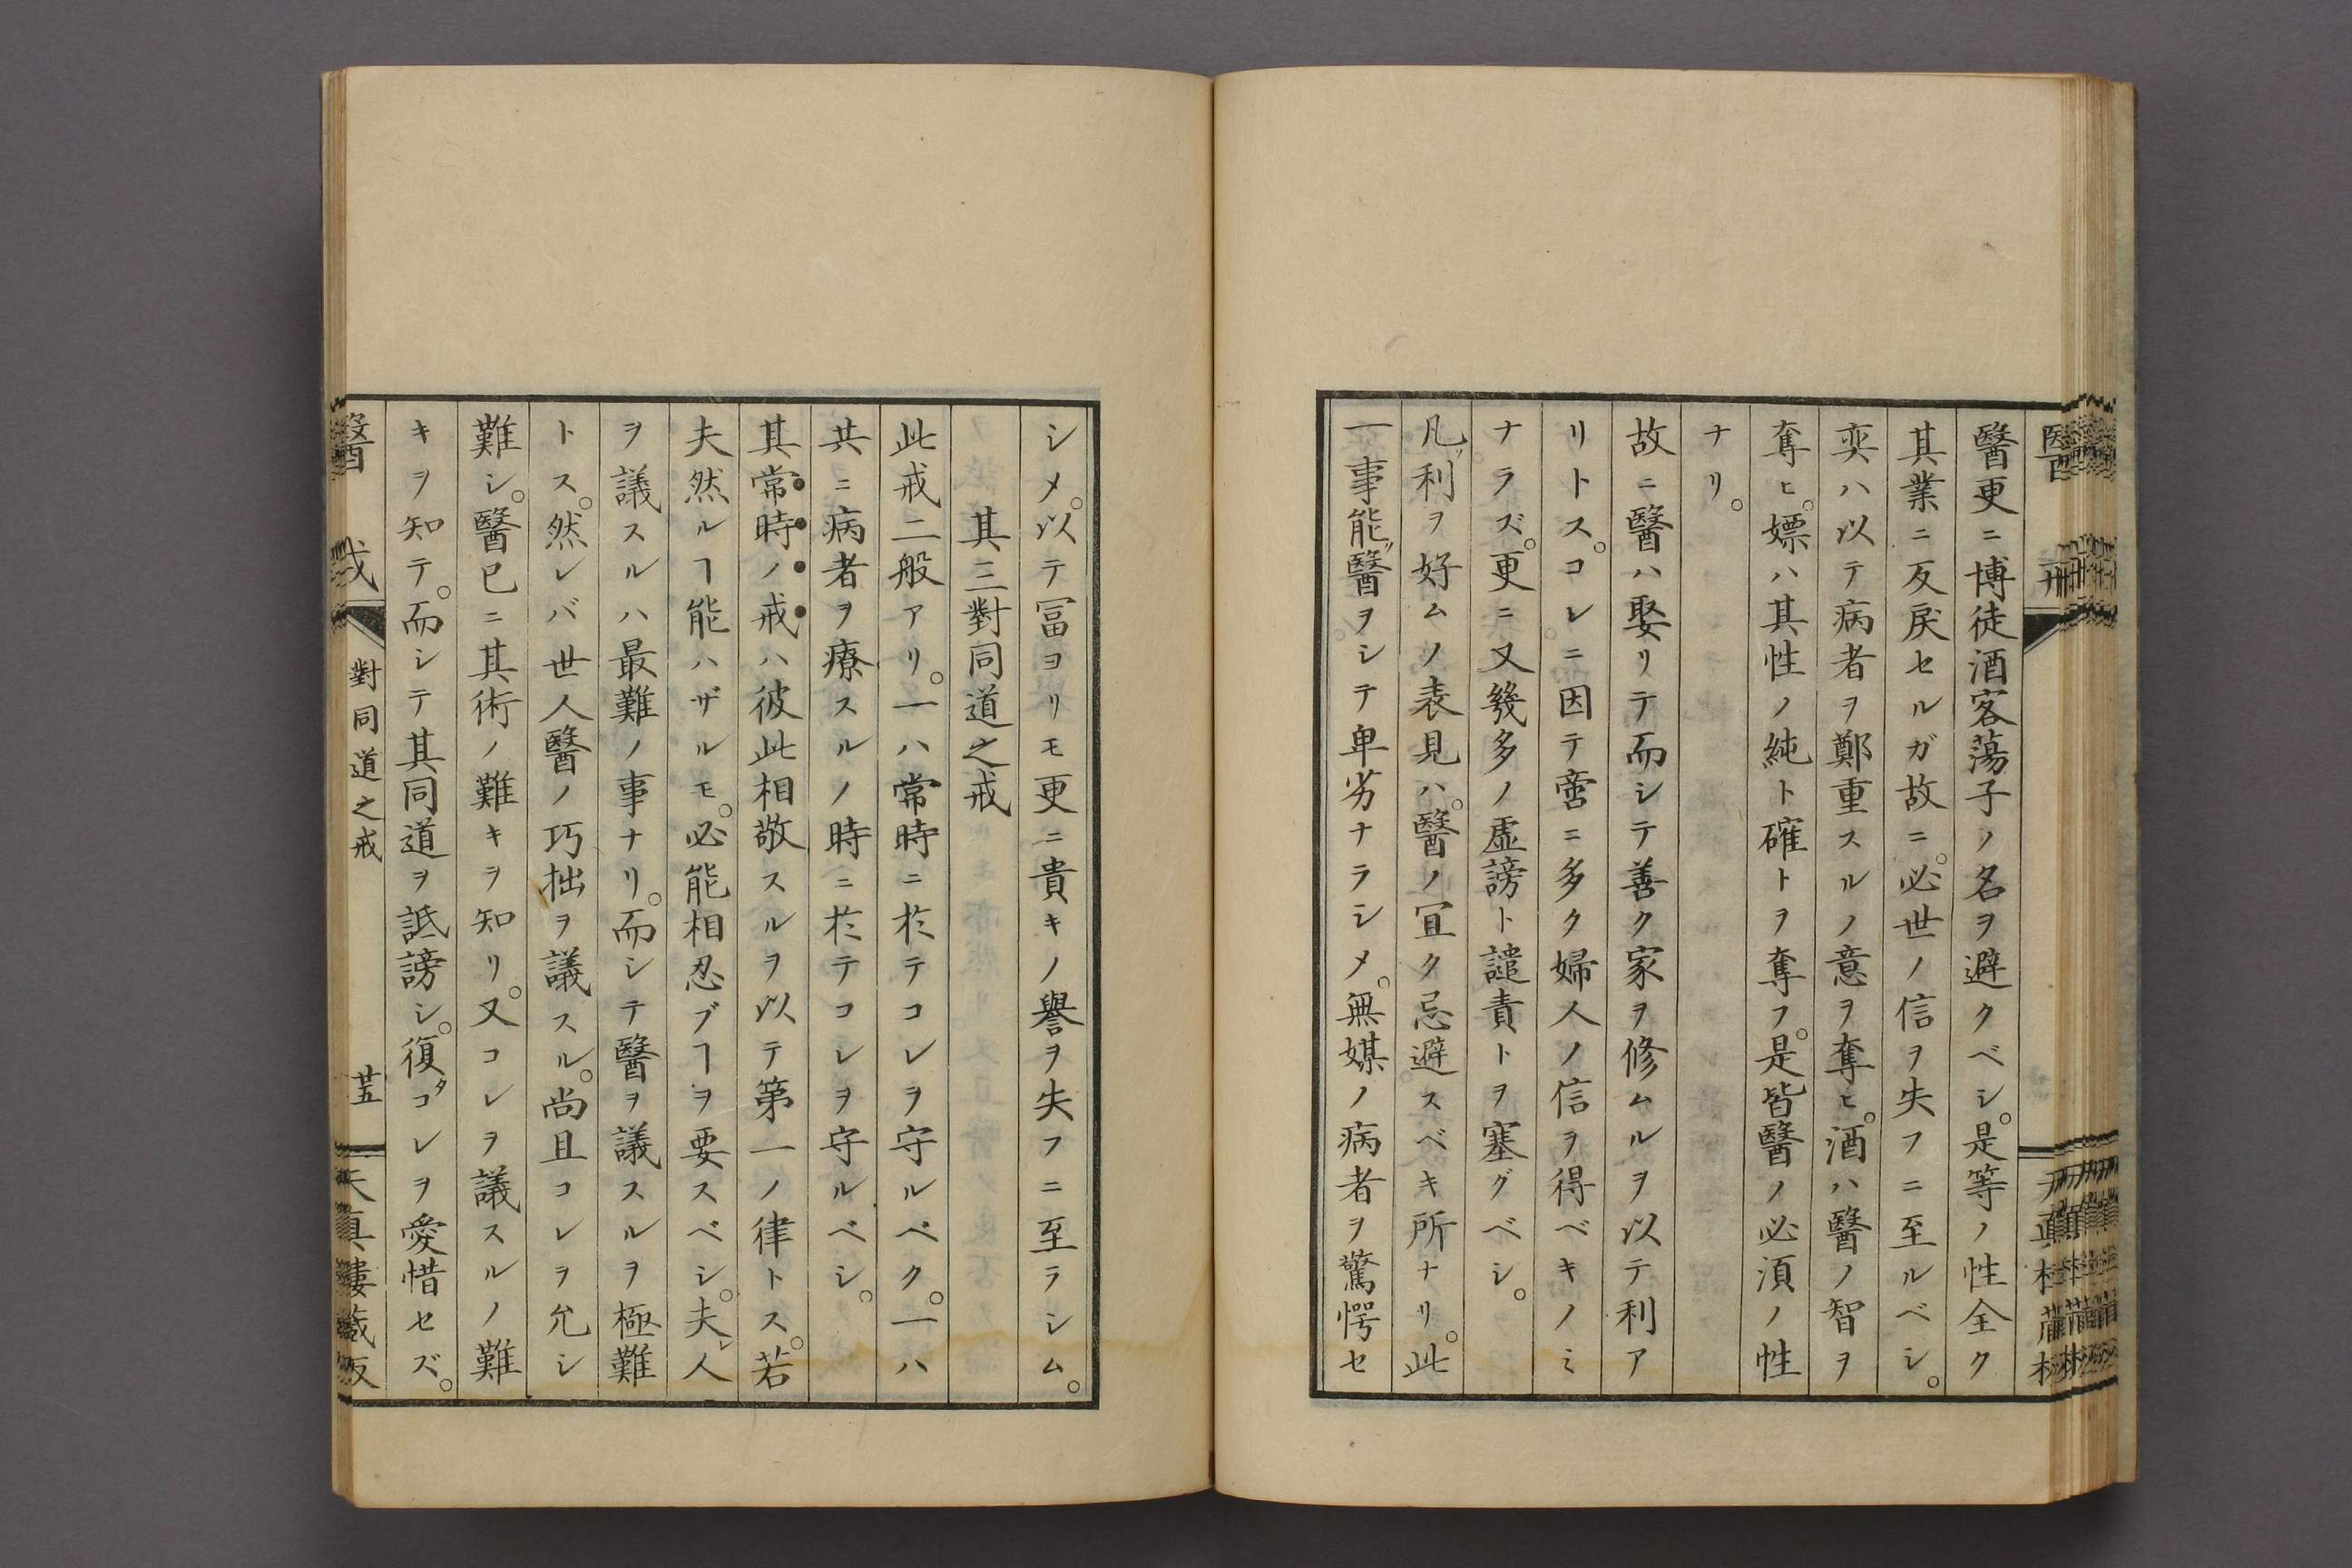 醫更ニ博徒酒客蕩子ノ名ヲ避クベシ。是等ノ性全ク
其業ニ反戾セルガ故ニ。必世ノ信ヲ失フニ至ルベシ。
奕ハ以テ病者ヲ鄭重スルノ意ヲ奪ヒ。酒ハ醫ノ智ヲ
奪ヒ。嫖ハ其性ノ純ト確トヲ奪フ。是皆醫ノ必須ノ性
ナリ。
故ニ醫ハ娶リテ而シテ善ク家ヲ修ムルヲ以テ利ア
リトス。コレニ因テ啻ニ多ク婦人ノ信ヲ得ベキノミ
ナラズ。更ニ又幾多ノ虛謗ト譴責トヲ塞グベシ。
凡ソ利ヲ好ムノ表見ハ。醫ノ宜ク忌避スベキ所ナリ。此
一事能ク醫ヲシテ卑劣ナラシメ。無媒ノ病者ヲ驚愕セ
シメ。以テ冨ヨリモ更ニ貴キノ譽ヲ失フニ至ラシム。
其三對同道之戒
此戒二般アリ。一ハ常時ニ於テコレヲ守ルベク。一ハ
共ニ病者ヲ療スルノ時ニ於テコレヲ守ルベシ。
其常時ノ戒ハ彼此相敬スルヲ以テ第一ノ律トス。若
夫然ルヿ能ハザルモ。必能相忍ブヿヲ要スベシ。夫レ人
ヲ議スルハ最難ノ事ナリ。而シテ醫ヲ議スルヲ極難
トス。然レバ世人醫ノ巧拙ヲ議スル。尚且コレヲ允シ
難シ。醫已ニ其術ノ難キヲ知リ。又コレヲ議スルノ難
キヲ知テ。而シテ其同道ヲ詆謗シ。復タコレヲ愛惜セズ。
醫戒
對同道之戒
廿五
天真樓藏版